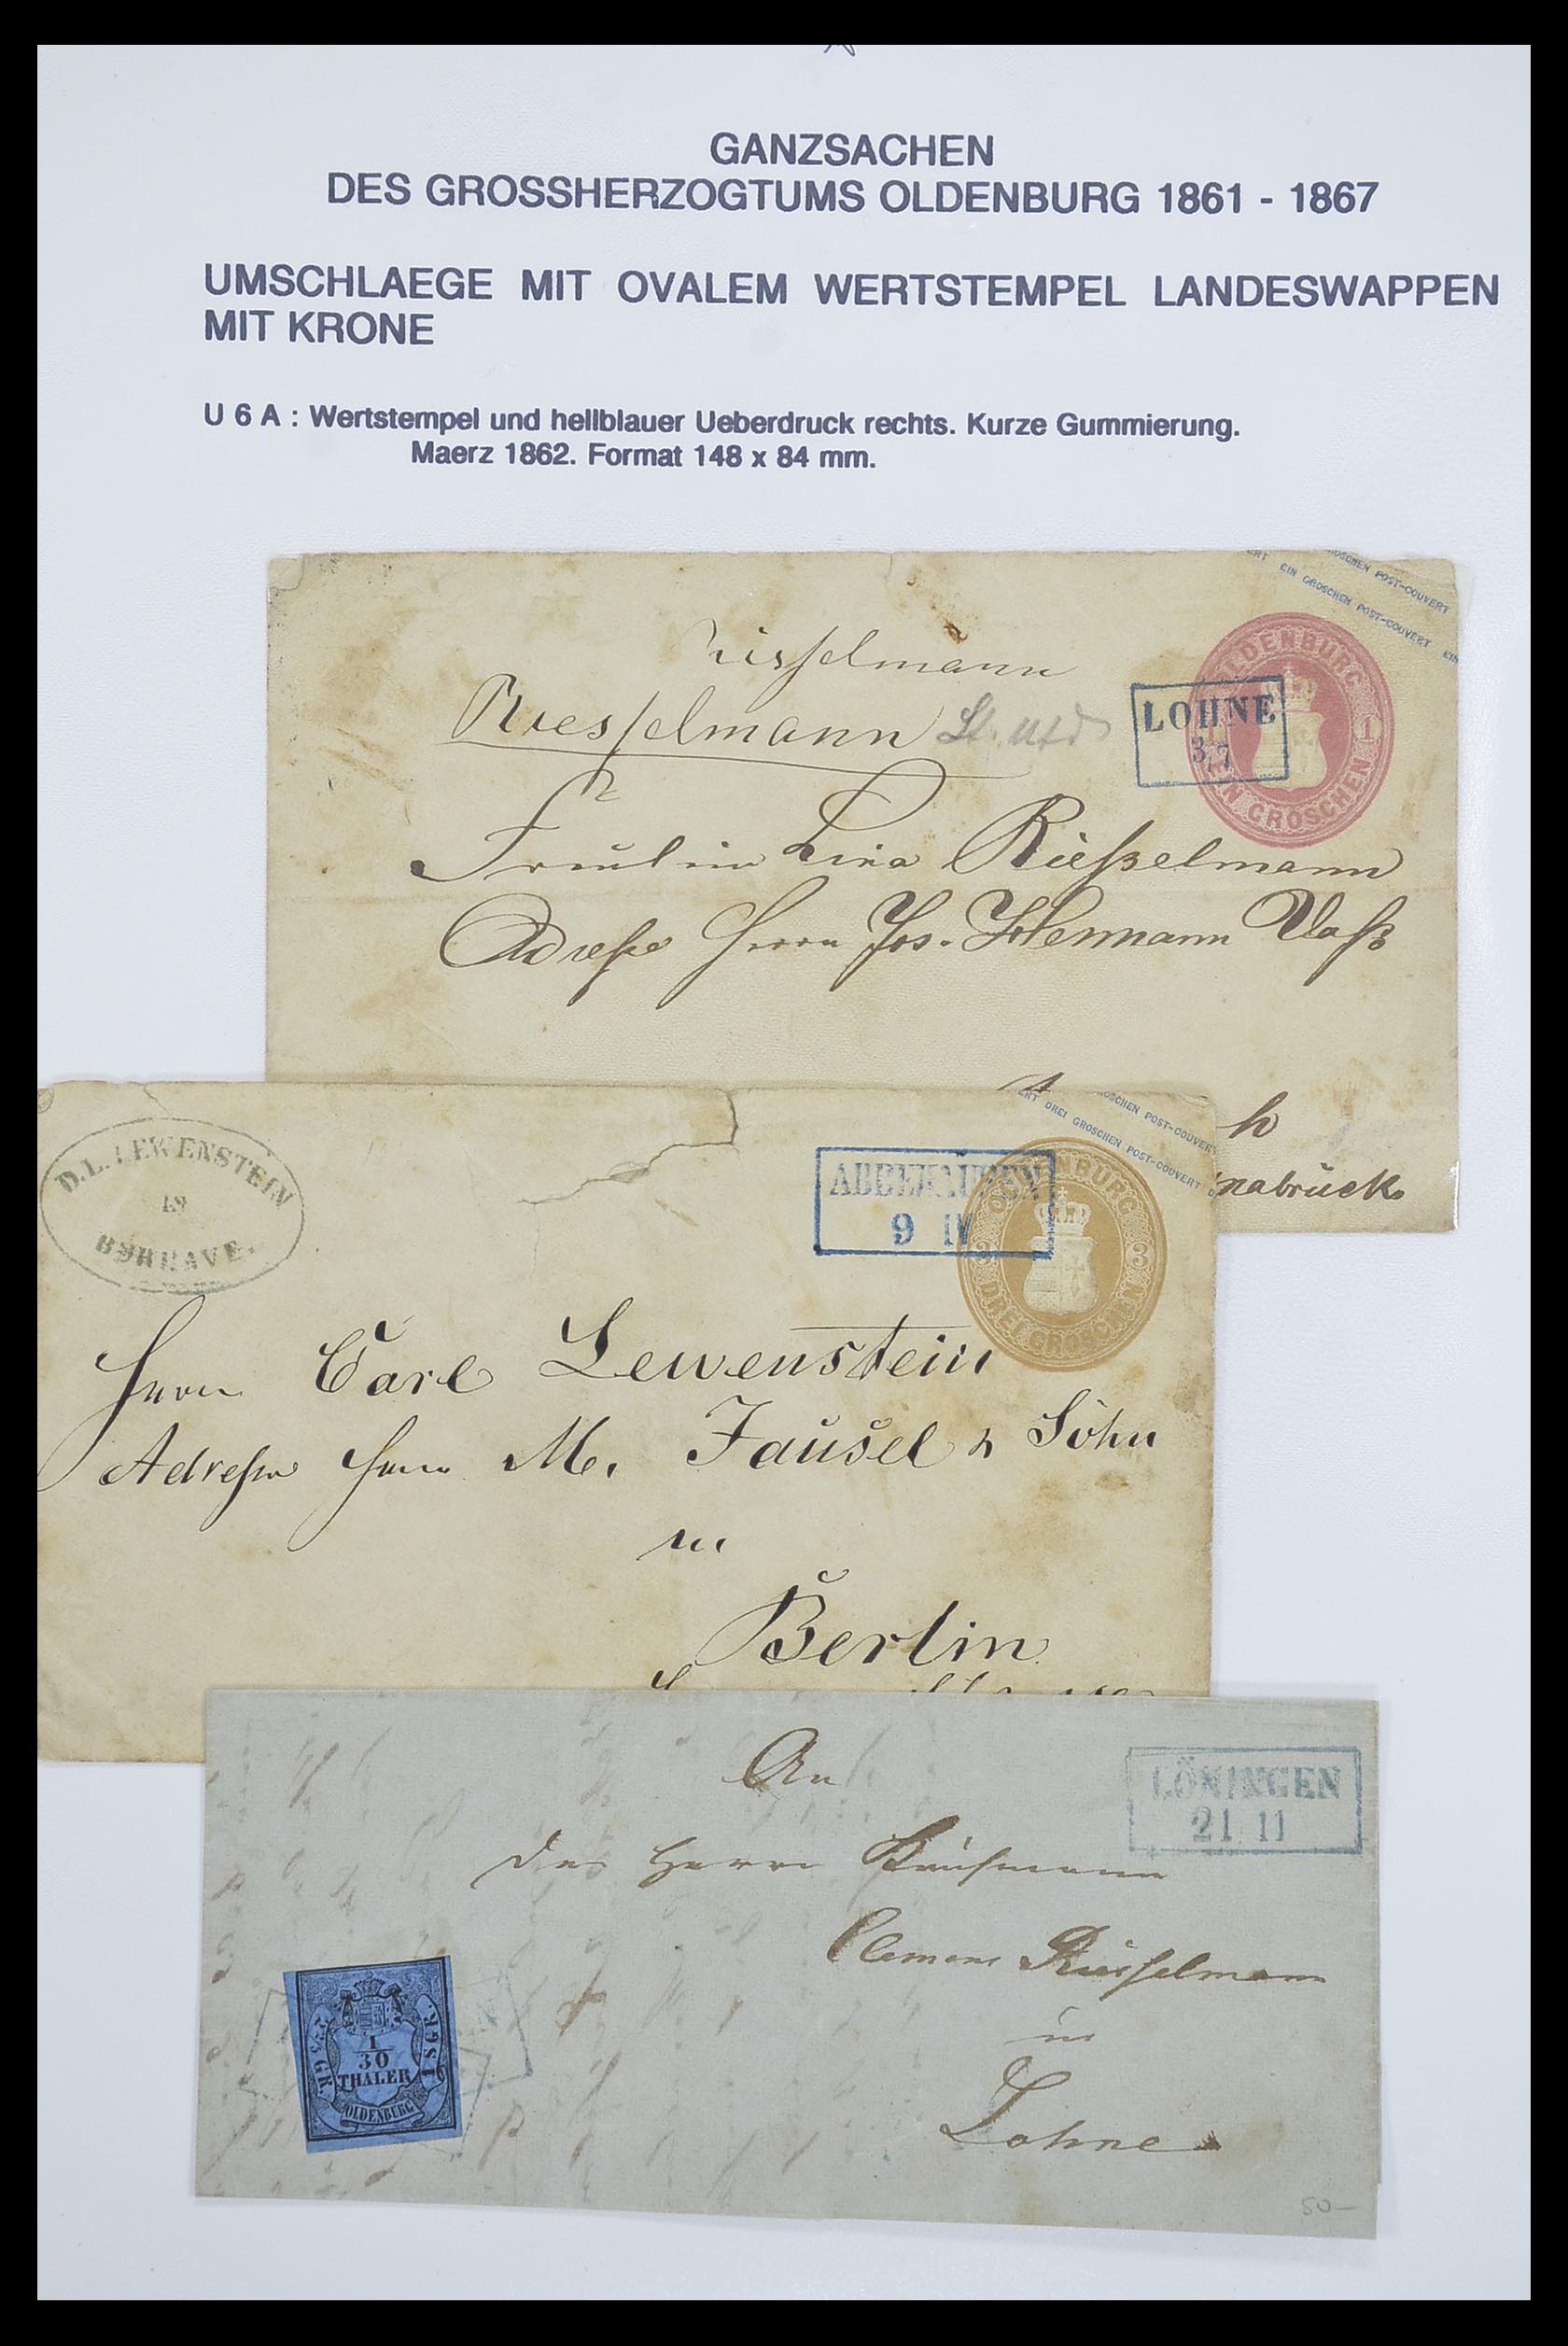 GANZSACHEN
DES GROSSHERZOGTUMS OLDENBURG 1861 - 1867
UMSCHLAEGE MIT OVALEM WERTSTEMPEL LANDESWAPPEN
MIT KRONE
U 6 A : Wertstempel und hellblauer Ueberdruck rechts. Kurze Gummierung.
Maerz 1862. Format 148 x 84 mm.
OSCHEN POST-COUVERT
ERT EIN GROSCHEN POST-COUVERT EIN
LDENBURG
1
IN GROSCHEN
LOHNE
3/7
Riesselmann
Fräulein Lina Rießelmann
Adresse Herrn Jos. Hermann Vaß
nabrück
OSCHEN POST-COUVERT
ERT DREI GROSCHEN POST-COUVERT D
D.L. LEWENSTEIN
IN
BERNE
9 IV
NBURG
3 3
DREI GROSCHEN
Herrn Carl Lewenstein
Adresse Herrn M. Fausel & Söhn
in
Berlin
An
den Herrn Kaufmann
Clemens Riesselmann
in
Lohne
LÖNINGEN
21 11
1/30
THALER
1 SGR.
OLDENBURG
50-